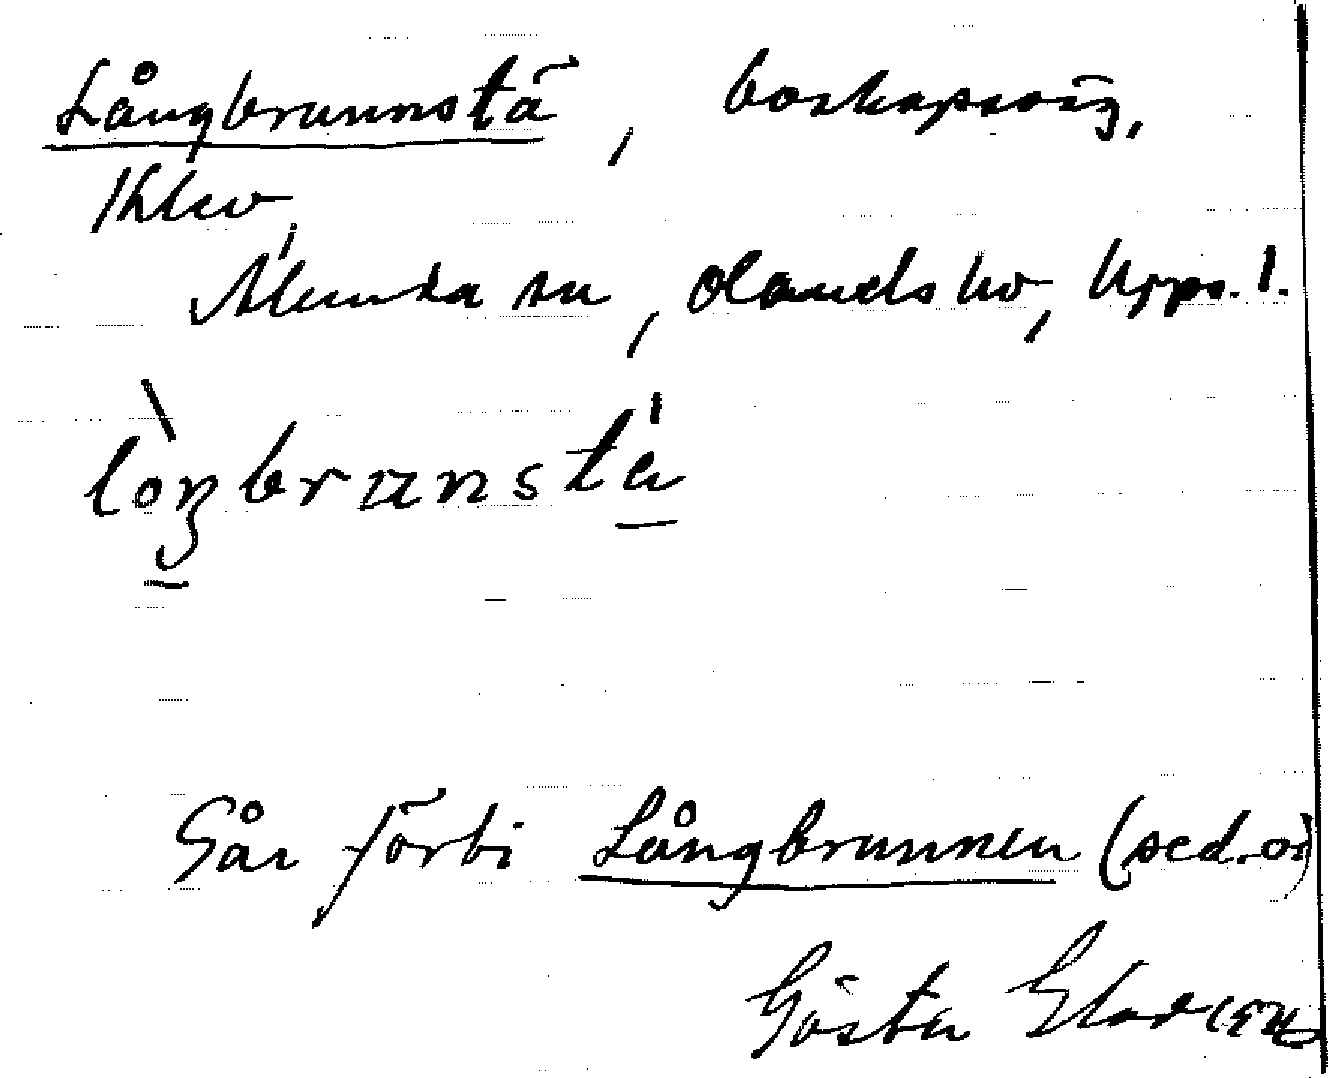 Långbrunnstä, boskapsväg,
Alunda sn, Olands hd, Upps. l.
lòŋbrunsta
Går förbi Långbrunnen (sed. o)
Gösta